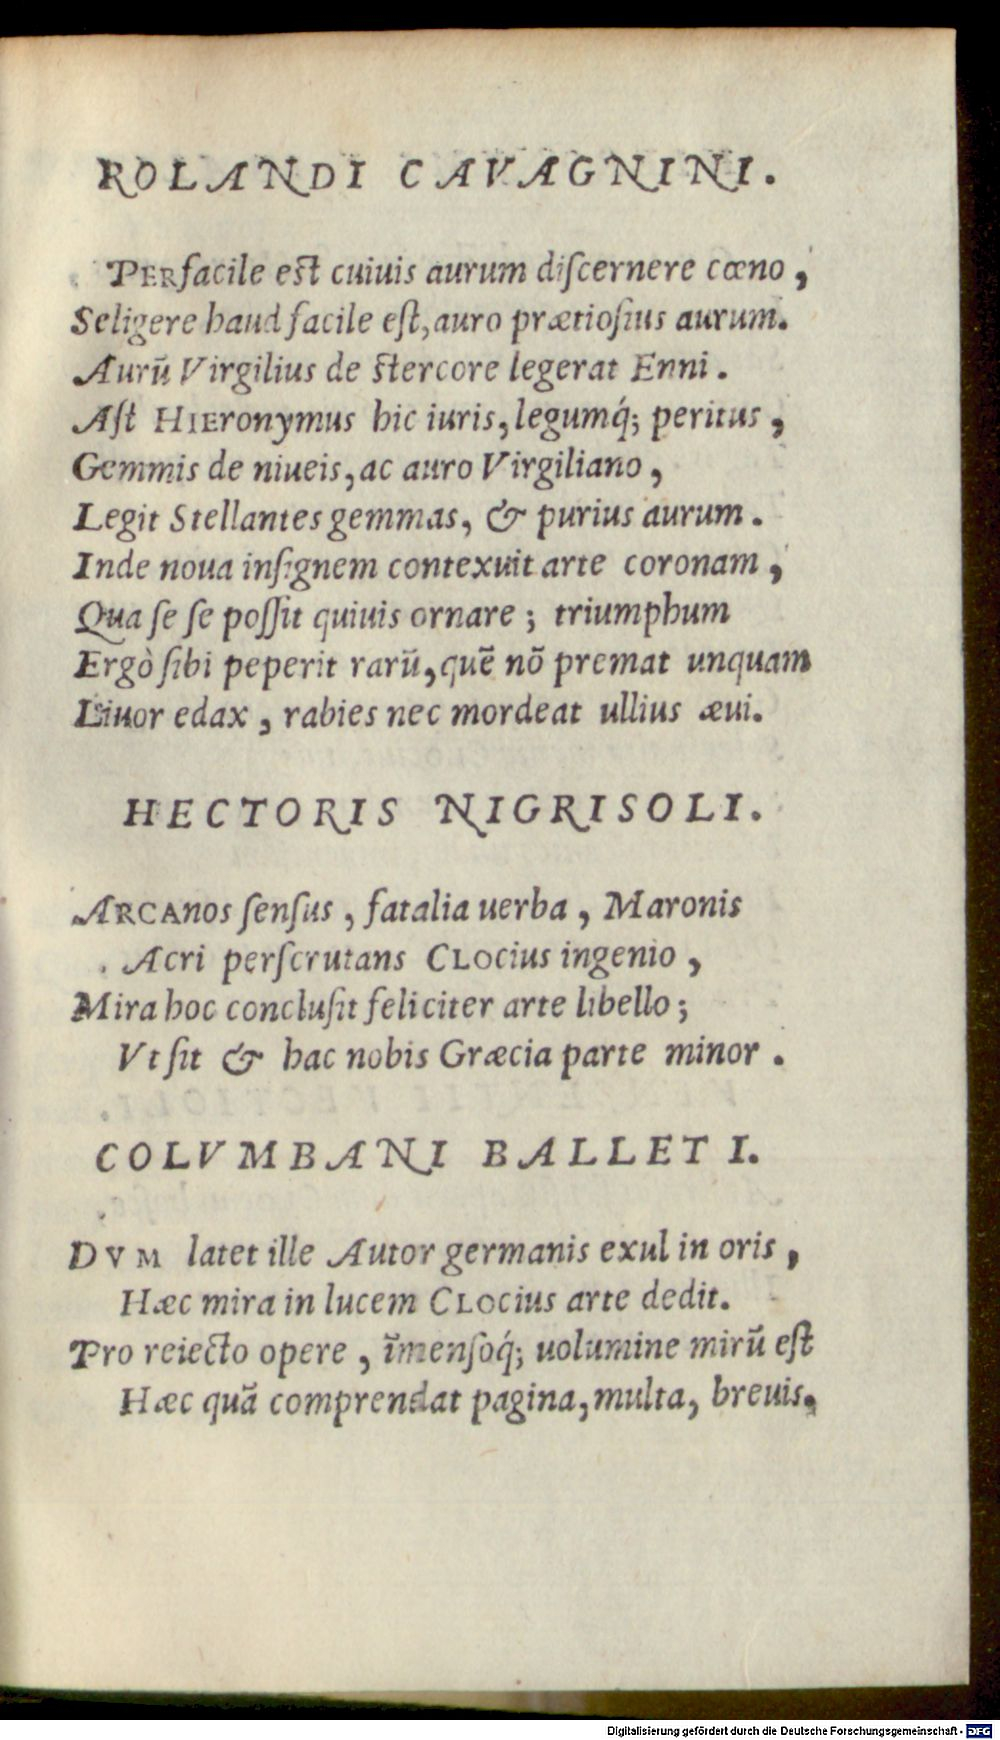 ROLANDI CAVAGNINI.
PERfacile est cuiuis aurum discernere cœno,
Seligere haud facile est, auro prætiosius aurum.
Aurū Virgilius de stercore legerat Enni.
Ast HIEronymus hic iuris, legumq́; peritus,
Gemmis de niueis, ac auro Virgiliano,
Legit Stellantes gemmas, & purius aurum.
Inde noua insignem contexuit arte coronam,
Qua se se possit quiuis ornare; triumphum
Ergò sibi peperit rarū, quē nō premat unquam
Liuor edax, rabies nec mordeat ullius æui.
HECTORIS NIGRISOLI.
ARCAnos sensus, fatalia uerba, Maronis
Acri perscrutans CLOcius ingenio,
Mira hoc conclusit feliciter arte libello;
Vt sit & hac nobis Græcia parte minor.
COLVMBANI BALLETI.
DVM latet ille Autor germanis exul in oris,
Hæc mira in lucem CLOcius arte dedit.
Pro reiecto opere, īmensoq́; uolumine mirū est
Hæc quā comprendat pagina, multa, breuis.
Digitalisierung gefördert durch die Deutsche Forschungsgemeinschaft - DFG